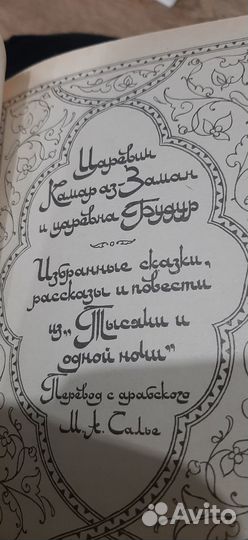 Царевич
Камар аз-Заман
и царевна Будур
Избранные сказки,
рассказы и повести
из „Тысячи и
одной ночи“
Перевод с арабского
М. А. Салье
Avito